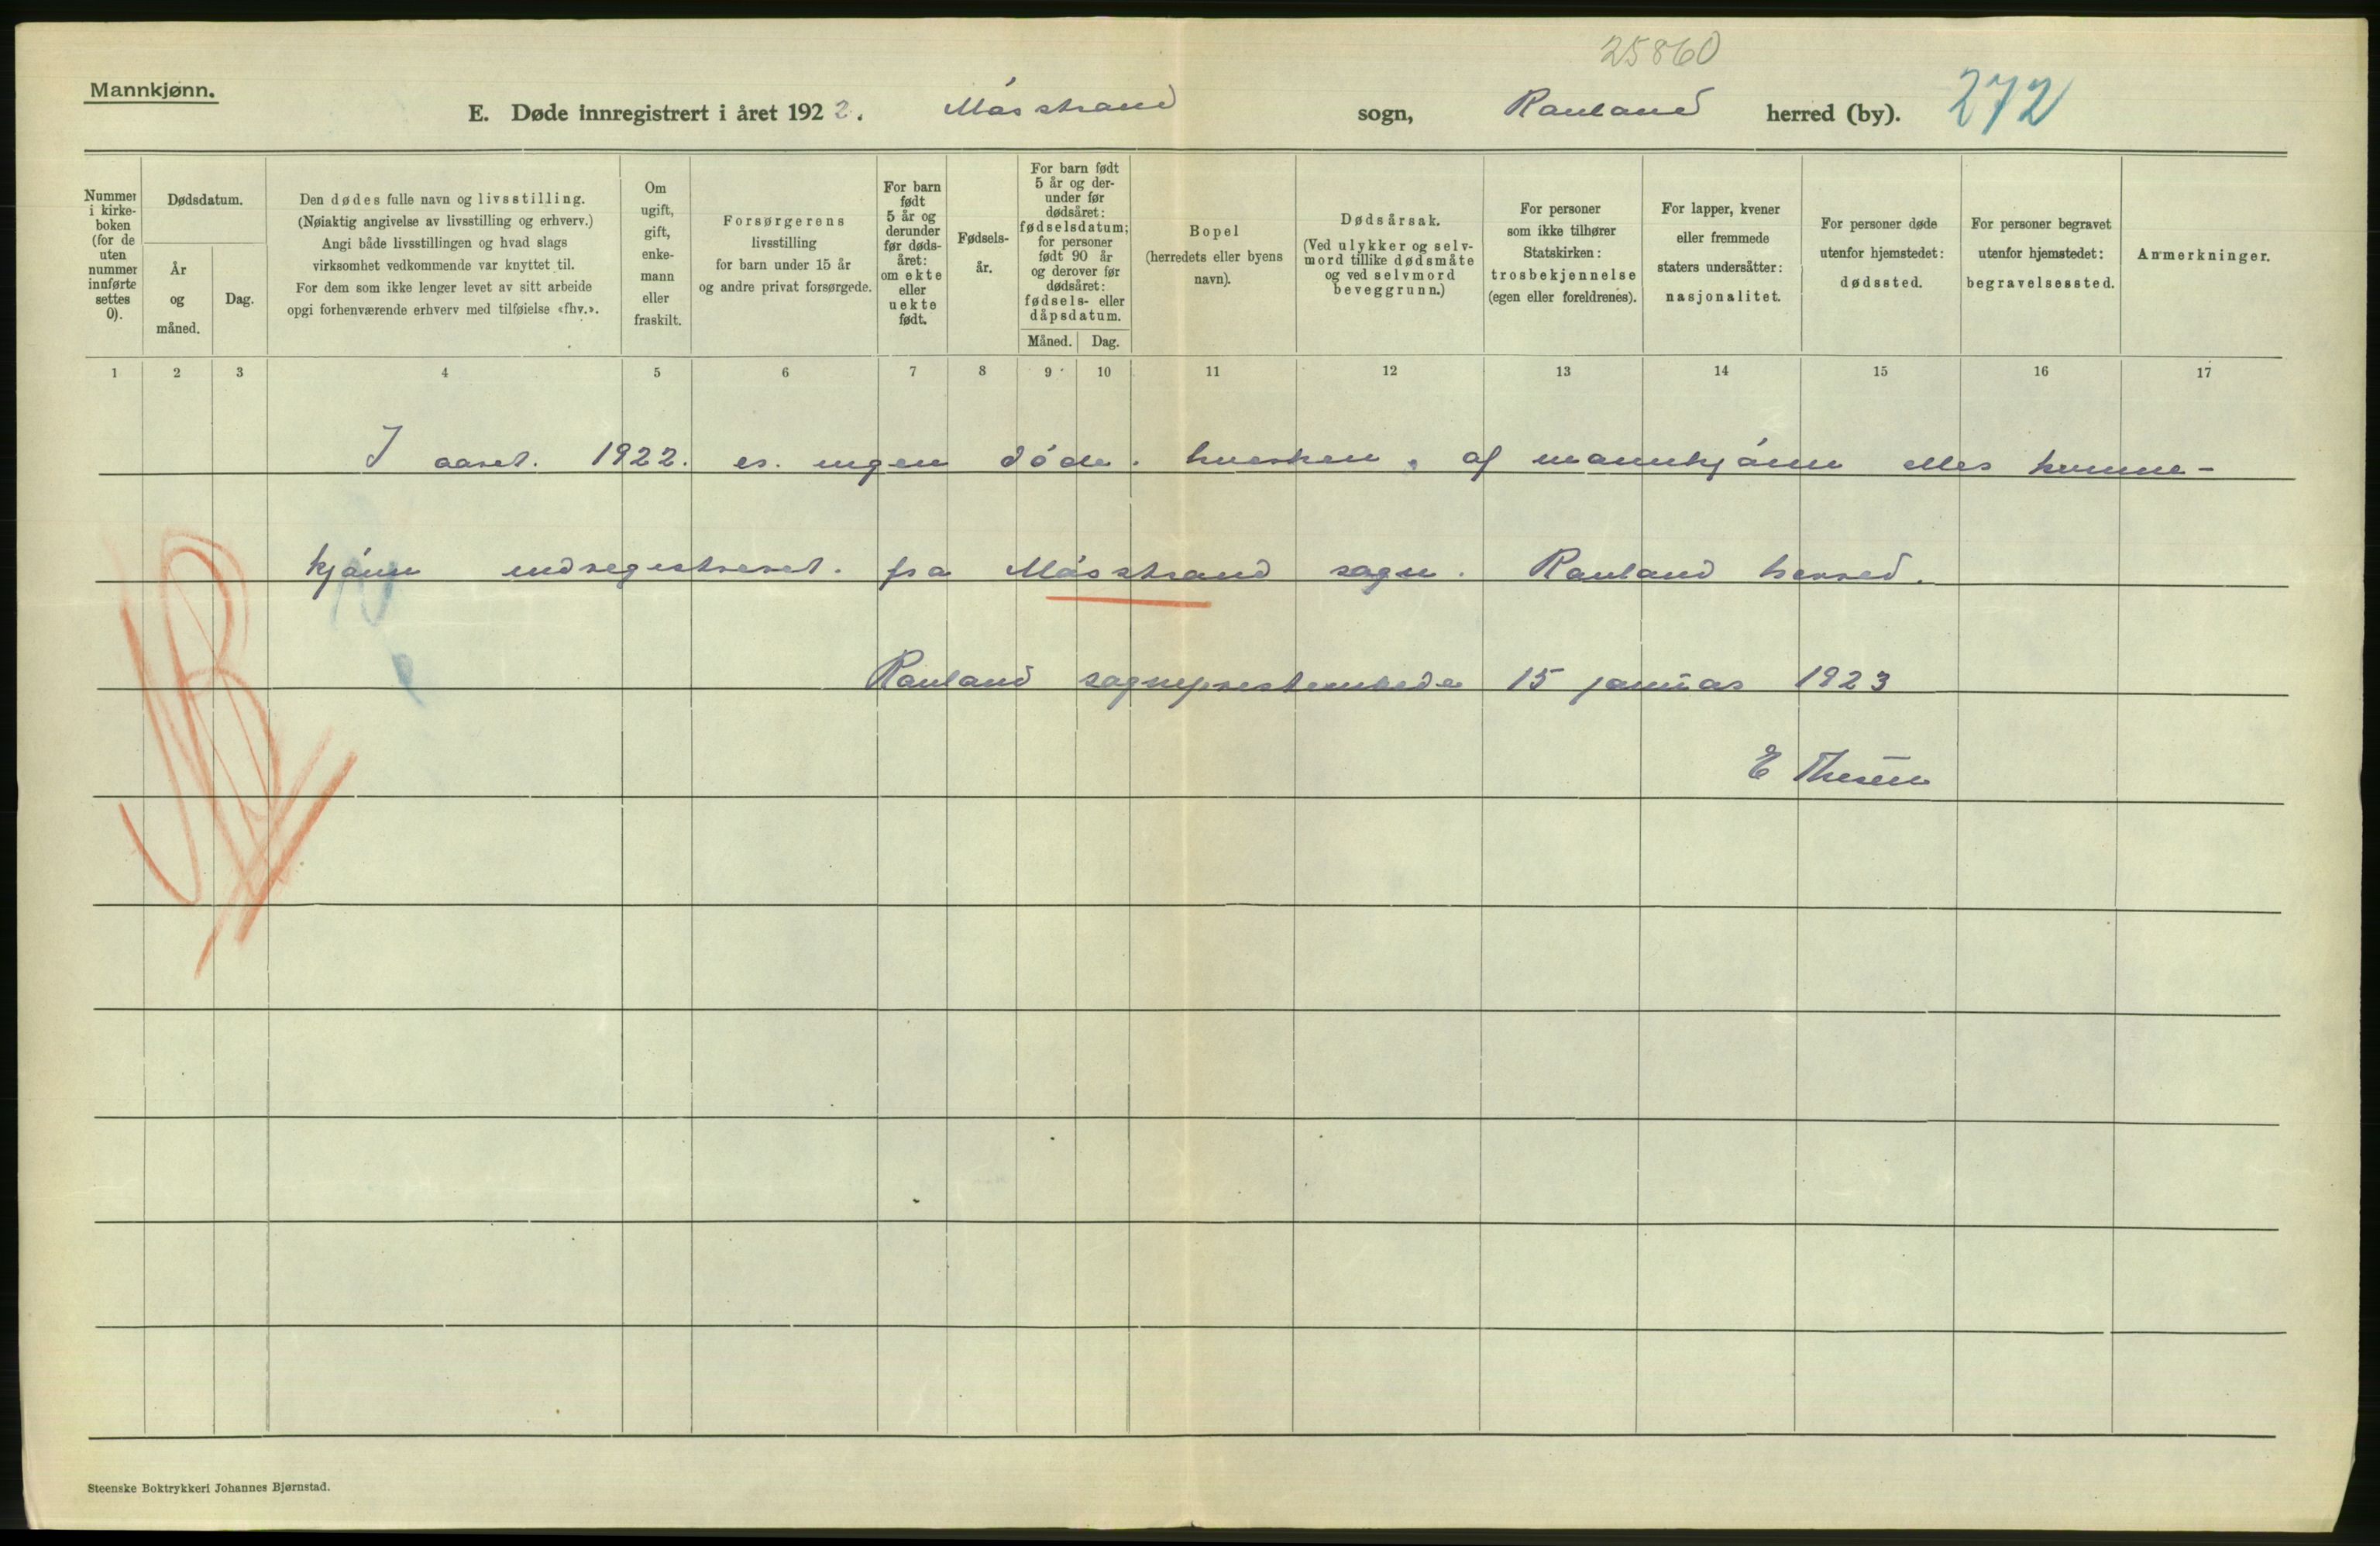 25860
Mannkjønn.
E. Døde innregistrert i året 1922. Måsstrand sogn, Rauland herred (by). 272
Nummer i kirke- boken (for de uten nummer innførte settes 0).
Dødsdatum.
År og måned.
Dag.
Den dødes fulle navn og livsstilling.
(Nøiaktig angivelse av livsstilling og erhverv.)
Angi både livsstillingen og hvad slags
virksomhet vedkommende var knyttet til.
For dem som ikke lenger levet av sitt arbeide
opgi forhenværende erhverv med tilføielse «fhv.».
Om ugift, gift, enke- mann eller fraskilt.
Forsørgerens
livsstilling
for barn under 15 år
og andre privat forsørgede.
For barn født 5 år og derunder før døds- året: om ekte eller uekte født.
Fødsels- år.
For barn født 5 år og der- under før dødsåret: fødselsdatum; for personer født 90 år og derover før dødsåret: fødsels- eller dåpsdatum.
Måned. Dag.
Bopel
(herredets eller byens
navn).
Dødsårsak.
(Ved ulykker og selv-
mord tillike dødsmåte
og ved selvmord
beveggrunn.)
For personer
som ikke tilhører
Statskirken:
trosbekjennelse
(egen eller foreldrenes).
For lapper, kvener
eller fremmede
staters undersåtter:
nasjonalitet.
For personer døde
utenfor hjemstedet:
dødssted.
For personer begravet
utenfor hjemstedet:
begravelsessted.
Anmerkninger.
1 2 3 4 5 6 7 8 9 10 11 12 13 14 15 16 17
I aaret. 1922. er. ingen døde. hverken. af mannkjønn eller kvinne-
kjønn indregistreret. fra Måsstrand sogn. Rauland herred.
Rauland sogneprestembede 15 januar 1923
E Thesen
Steenske Boktrykkeri Johannes Bjørnstad.